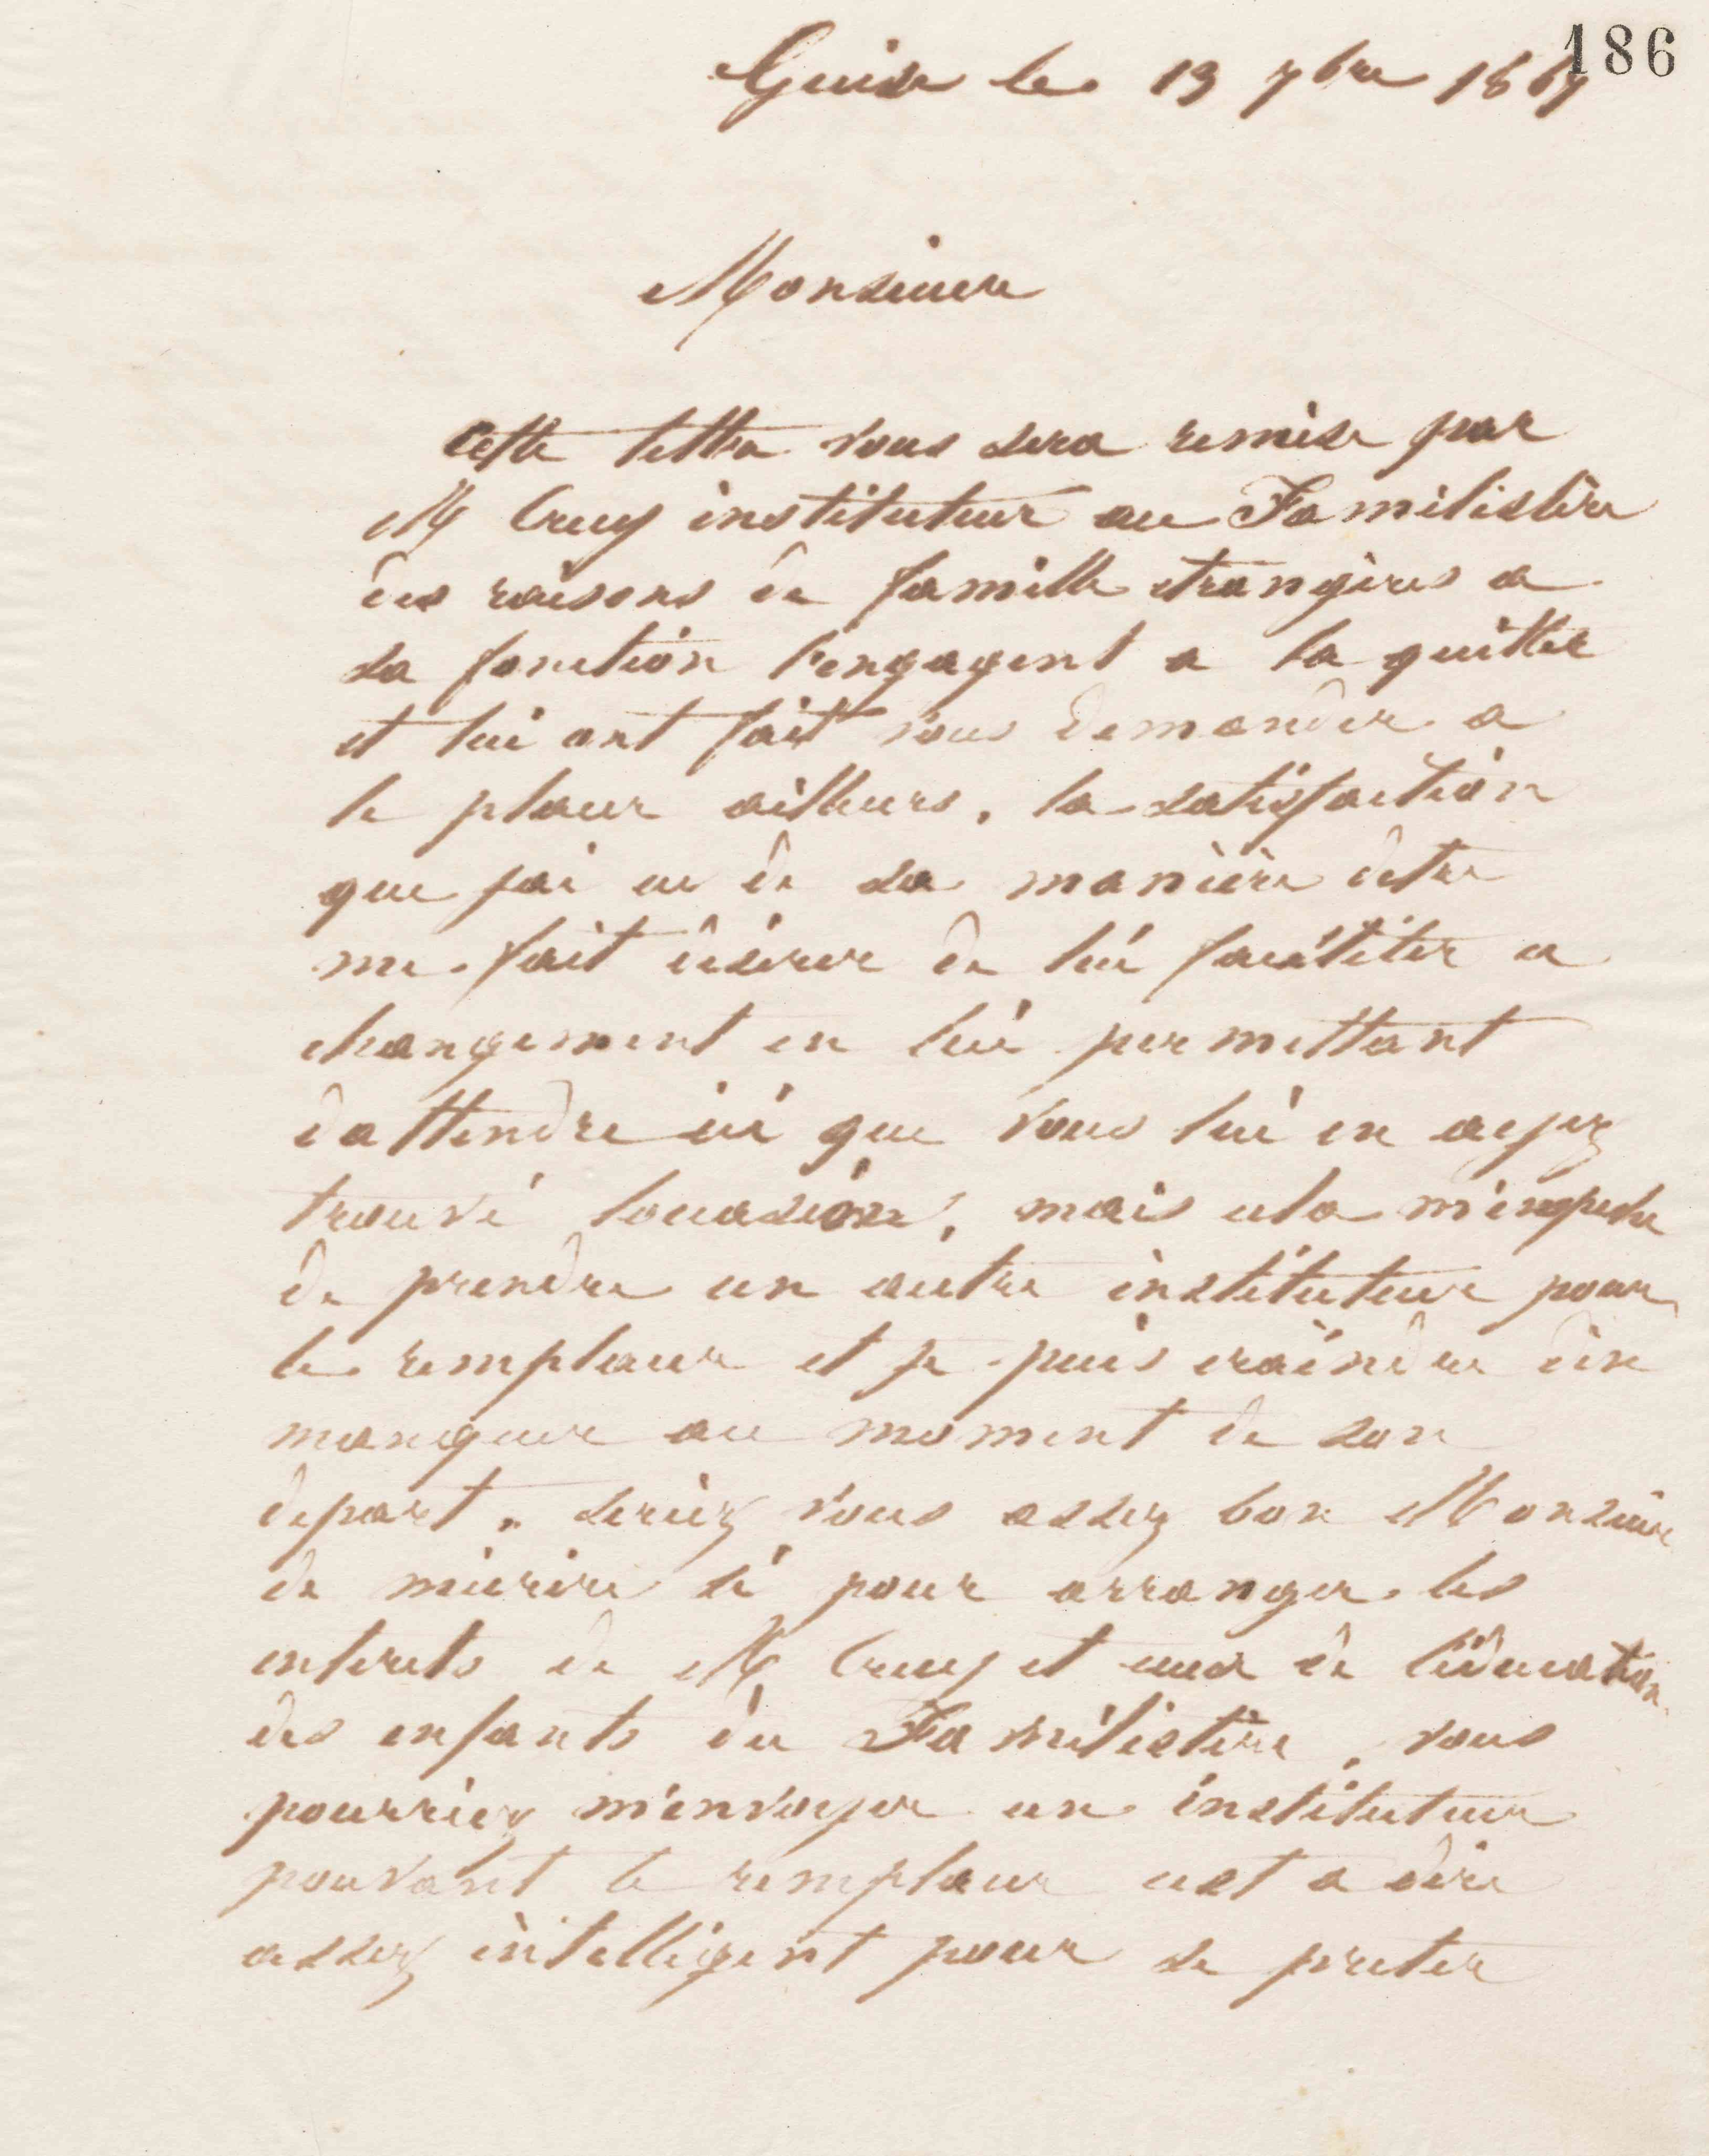 186
Guise le 19 7bre 1867
Monsieur
Cette lettre vous sera remise par
M Cruy instituteur au Familistère
des raisons de famille etrangères a
sa fonction l'engagent a la quitter
et lui ont fait vous demander a
le placer ailleurs, la satisfaction
que jai eu de sa manière detre
me fait désirer de lui faciliter ce
changement en lui permettant
dattendre ici que vous lui en ayez
trouvé loccasion, mais cela m'empeche
de prendre un autre instituteur pour
le remplacer et je puis craindre den
manquer au moment de son
depart. seriez vous assez bon Monsieur
de mecrire si pour arranger les
interets de M Cruy et ceux de léducation
des enfants du Familistère, vous
pourriez m'envoyer un instituteur
pouvant le remplacer cest a dire
assez intelligent pour se preter